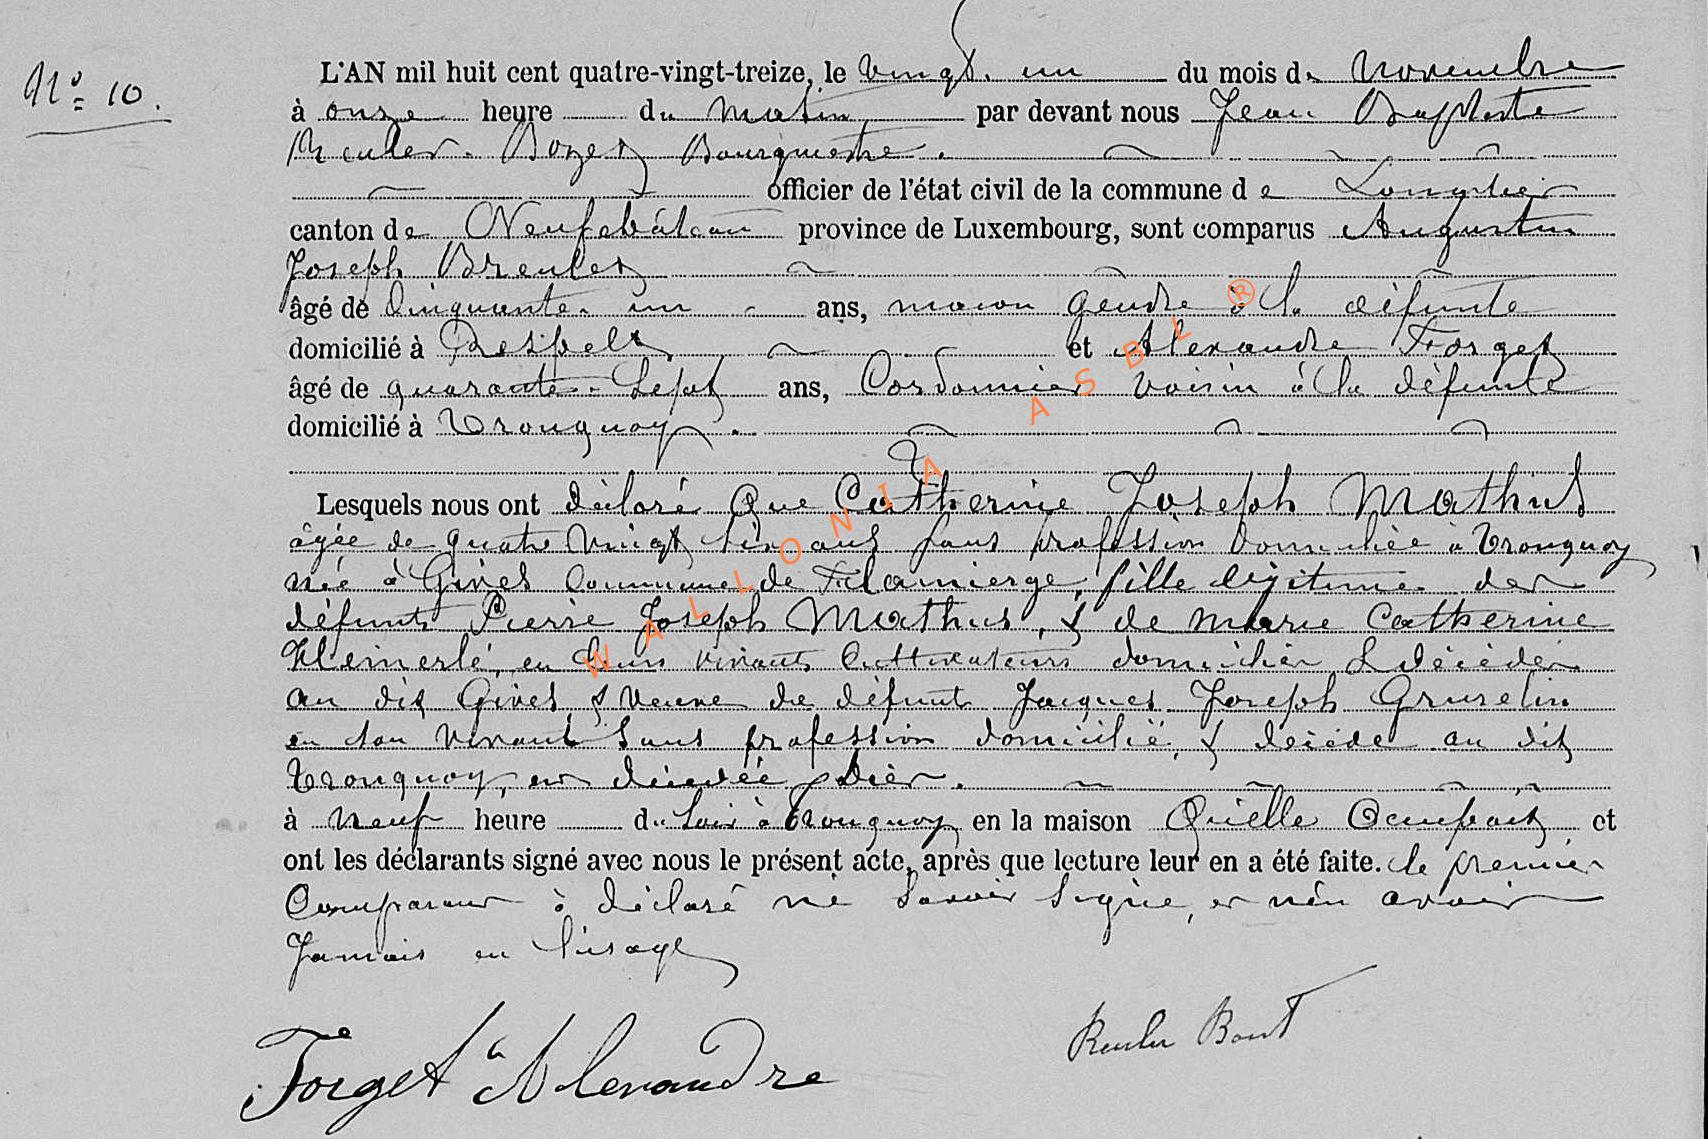 Nº 10.
L'AN mil huit cent quatre-vingt-treize, le vingt-un du mois de novembre
à onze heure du matin par devant nous Jean Baptiste
Reuler. Bourgmestre.
officier de l'état civil de la commune de Longlier
canton de Neufchâteau province de Luxembourg, sont comparus Augustin
Joseph
âgé de Cinquante-un ans, maçon gendre à la défunte
domicilié à Respelt et Alexandre Forget
âgé de quarante-sept ans, Cordonnier voisin à la défunte
domicilié à Tronquoy.
Lesquels nous ont déclaré que Catherine Joseph Mathus
âgée de quatre vingt ans sans profession domiciliée à Tronquoy
née à Gives Commune de Flamierge, fille légitime des
défunts Pierre Joseph Mathus, & de Marie Catherine
en leurs vivants Cultivateurs domiciliés & décédés
au dit Gives & veuve de défunt Jacques Joseph Gruselin
en son vivant sans profession domicilié, & décédé au dit
Tronquoy, est décédée hier.
à neuf heure du soir à Tronquoy en la maison Qu'elle Occupait et
ont les déclarants signé avec nous le présent acte, après que lecture leur en a été faite. le premier
Comparant à déclaré ne savoir signé, et n'en avoir
Jamais eu l'usage
Forget Alexandre
WALLONIA ASBL ®